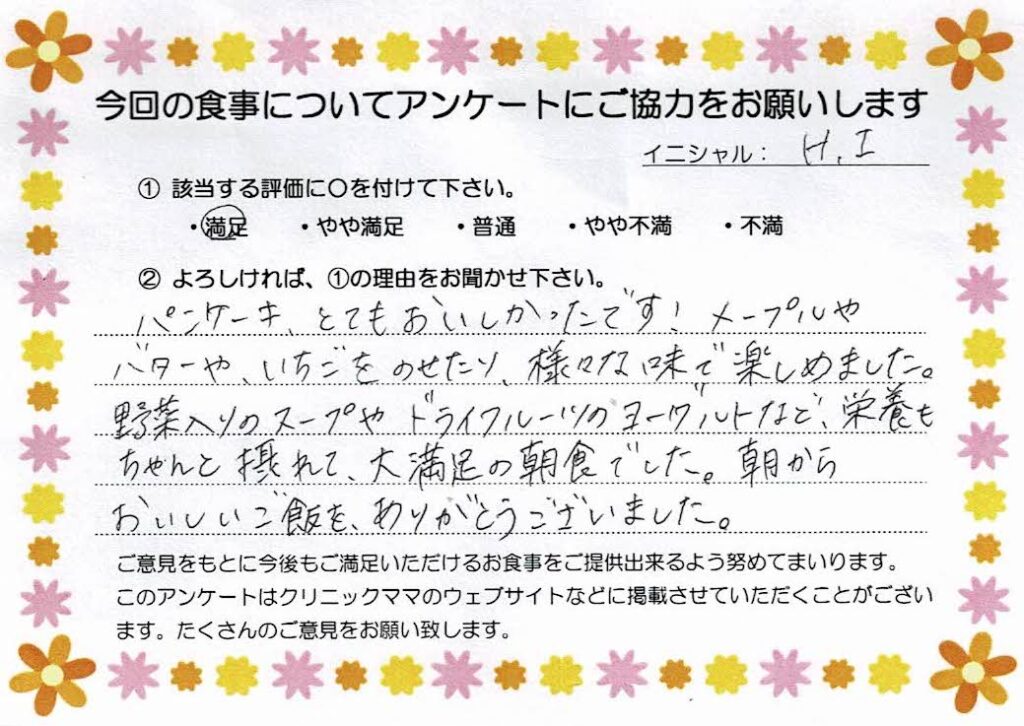 今回の食事についてアンケートにご協力をお願いします
イニシャル： H.I
① 該当する評価に○を付けて下さい。
・満足 ・やや満足 ・普通 ・やや不満 ・不満
② よろしければ、①の理由をお聞かせ下さい。
パンケーキ、とてもおいしかったです！メープルや
バターや、いちごをのせたり、様々な味で楽しめました。
野菜入りのスープやドライフルーツのヨーグルトなど、栄養も
ちゃんと摂れて、大満足の朝食でした。朝から
おいしいご飯を、ありがとうございました。
ご意見をもとに今後もご満足いただけるお食事をご提供出来るよう努めてまいります。
このアンケートはクリニックママのウェブサイトなどに掲載させていただくことがござい
ます。たくさんのご意見をお願い致します。